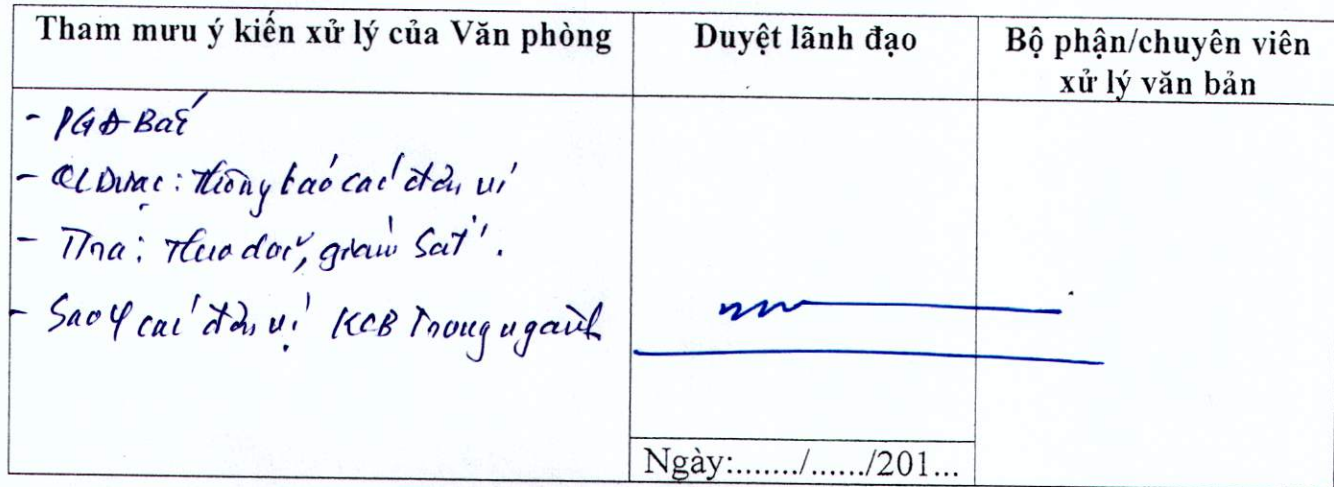 Tham mưu ý kiến xử lý của Văn phòng
Duyệt lãnh đạo
Bộ phận/chuyên viên
xử lý văn bản
- PGĐ Bất
- QLDược: thông báo các đơn vị
- TTra: theo dõi, giám sát.
- Sao Y các đơn vị KCB Trong ngành
Ngày:......./....../201...